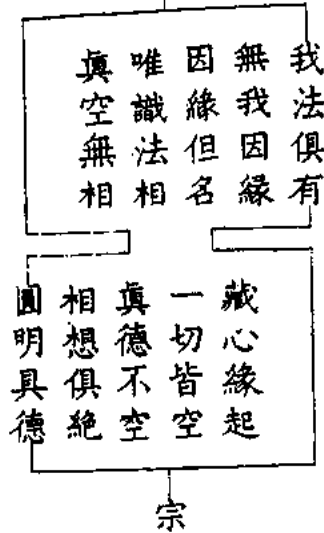 我法俱有
無我因緣
因緣但名
唯識法相
眞空無相
藏心緣起
一切皆空
眞德不空
相想俱絶
圓明具德
宗